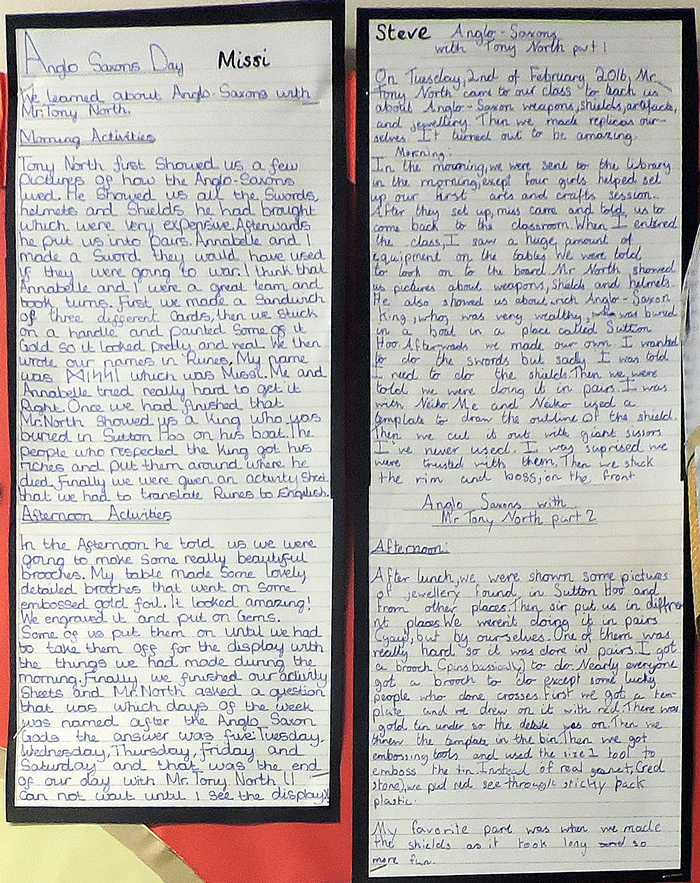 Anglo Saxons Day Missi
We learned about Anglo-Saxons with
Mr.Tony North.
Morning Activities
Tony North first showed us a few
pictures of how the Anglo-Saxons
lived. He showed us all the Swords,
helmets and Shields he had brought
which were very expensive. Afterwards
he put us into pairs. Annabelle and I
made a Sword they would have used
if they were going to war. I think that
Annabelle and I were a great team and
took turns. First we made a Sandwich
of three different Cards, then we stuck
on a handle and painted Some of it
Gold so it looked pretty and real. We then
wrote our names in Runes. My name
was ᛗᛁᛋᛋᛁ which was Missi. Me and
Annabelle tried really hard to get it
Right. Once we had finished that
Mr.North showed us a King who was
buried in Sutton Hoo on his boat. The
people who respected the King got his
riches and put them around where he
died. Finally we were given an activity sheet
that we had to translate Runes to English.
Afternoon Activities
In the Afternoon he told us we were
going to make Some really beautiful
brooches. My table made Some lovely
detailed broches that went on Some
embossed gold foil. It looked amazing!
We engraved it and put on Gems.
Some of us put them on until we had
to take them off for the display with
the things we had made during the
morning. Finally we finished our activity
Sheets and Mr.North asked a question
that was which days of the week
was named after the Anglo Saxon
Gods the answer was five: Tuesday,
Wednesday, Thursday, Friday and
Saturday and that was the end
of our day with Mr.Tony North !!
Can not wait until I see the display!
Steve Anglo-Saxons
with Tony North part 1
On Tuesday, 2nd of February 2016, Mr.
Tony North came to our class to teach us
about Anglo-Saxon weapons, shields, artifacts,
and jewellery. Then we made replicas our-
selves. It turned out to be amazing.
Morning:
In the mourning, we were sent to the library
in the morning, except four girls helped set
up, our first arts and crafts session.
After they set up, miss came and told us to
come back to the classroom. When I entered
the class, I saw a huge amount of
equipment on the tables. We were told
to look on to the board. Mr North showed
us pictures about weapons, shields and helmets.
He also showed us about rich Anglo-Saxon
King, who, was very wealthy, was buried
in a boat in a place called Sutton
Hoo. Afterwads we made our own. I wanted
to do the swords but sadly I was told
I need to do the shields. Then we were
told we were doing it in pairs. I was
with Neiko. Me and Neiko used a
template to draw the outline of the shield.
Then we cut it out with giant sissors
I've never used. I was suprised we
were trusted with them. Then we stuck
the rim and boss, on the front
Anglo Saxons with
Mr Tony North part 2
Afternoon:
After lunch, we were shown some pictures
of jewellery found in Sutton Hoo and
from other places. Then sir put us in differe
nt places. We weren't doing it in pairs
(yay), but by ourselves. One of them was
really hard so it was done in pairs. I got
a brooch (pins basically) to do. Nearly everyone
got a brooch to do except some lucky
people who done crosses. First we got a tem-
plate and we drew on it with red. There was
gold tin under so the detile was on. Then we
threw the template in the bin. Then we got
embossing tools and used the size 1 tool to
emboss the tin. Instead of real garnet, (red
stone), we put red see through sticky pack
plastic.
My favorite part was when we made
the shields as it took long and so
more fun.